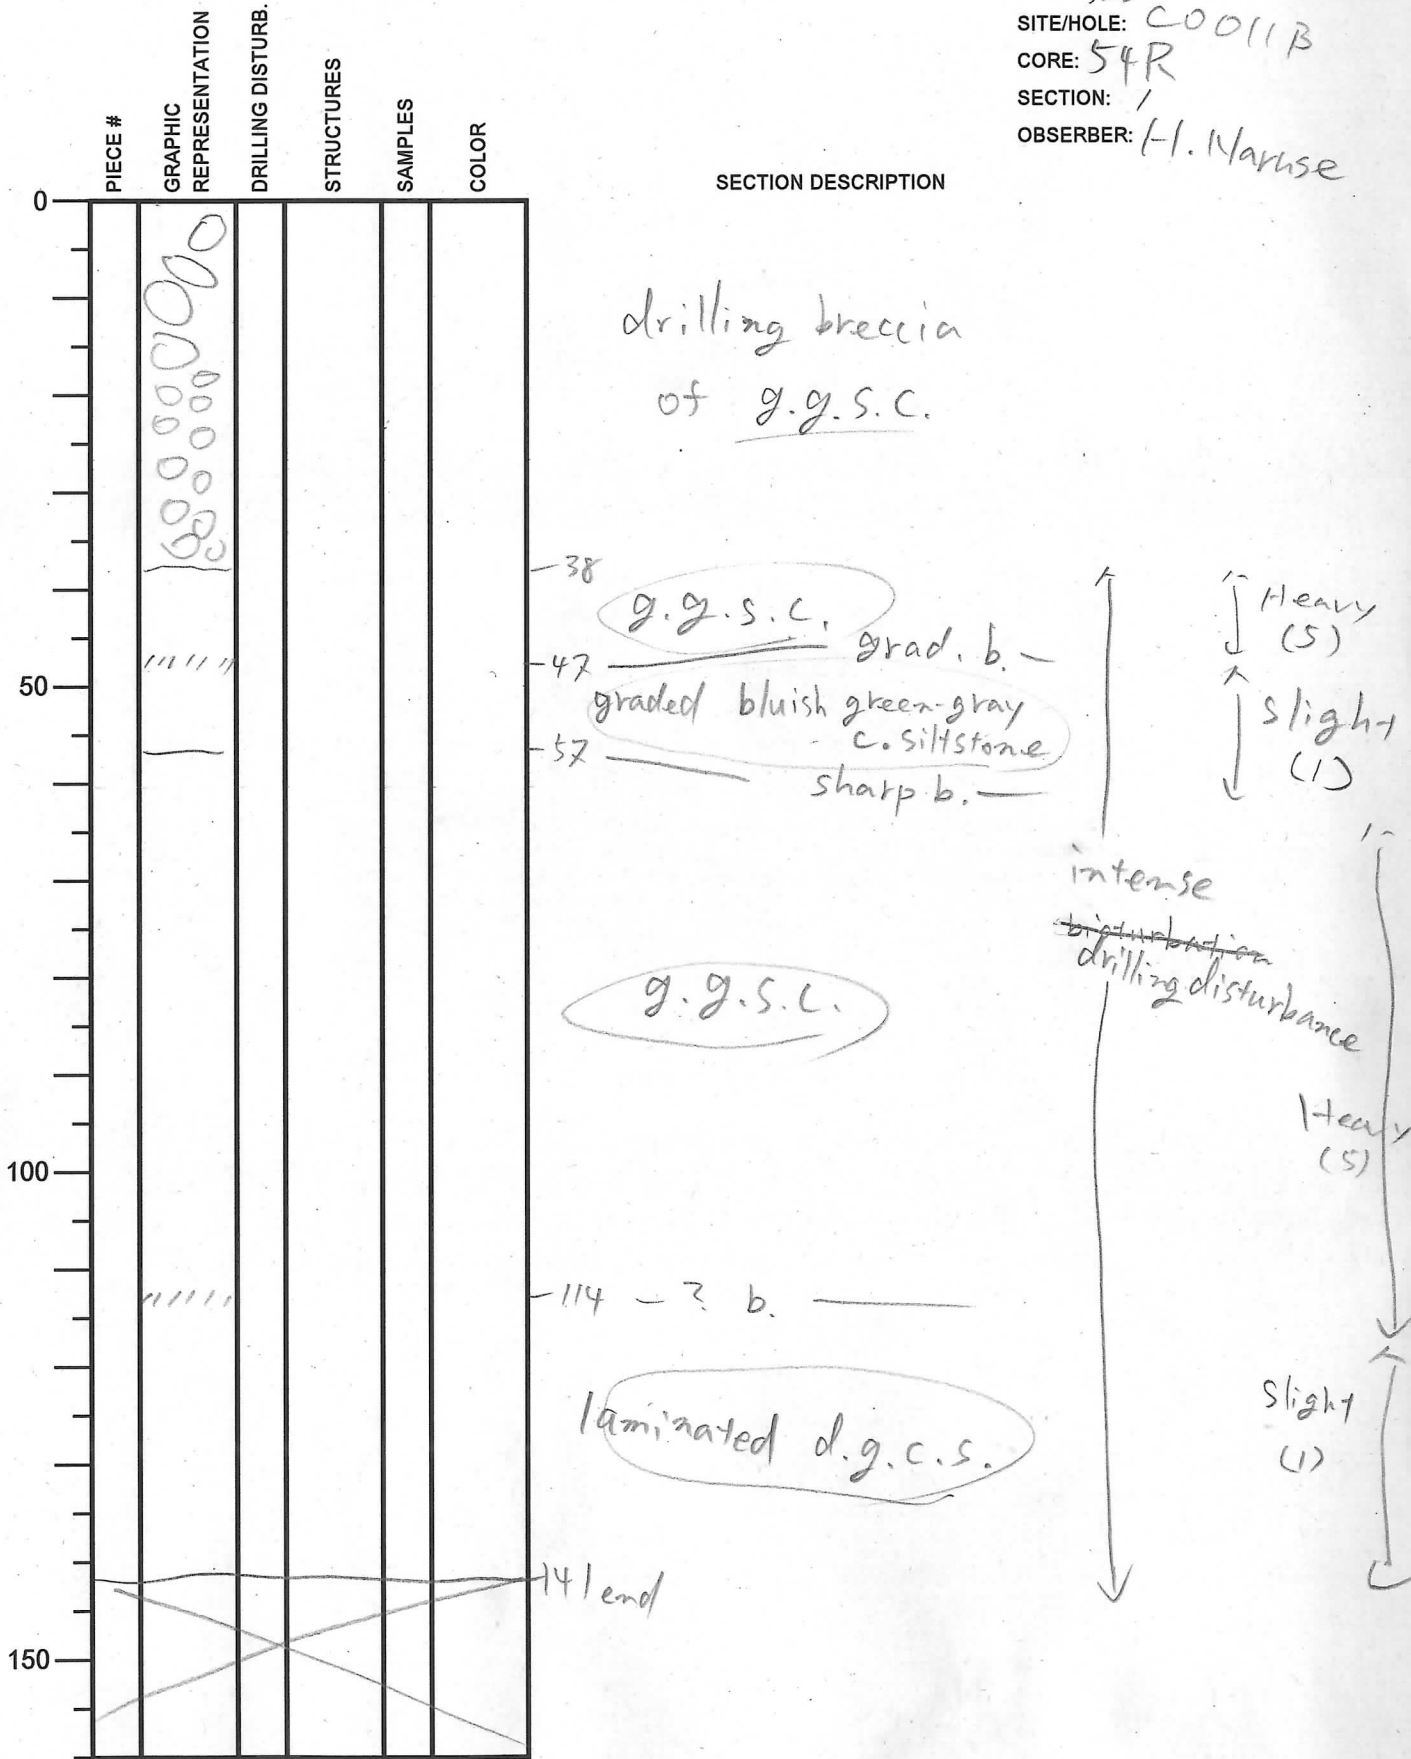 SITE/HOLE: C0011B
CORE: 54R
SECTION: 1
OBSERBER: H. Naruse
PIECE #
GRAPHIC
REPRESENTATION
DRILLING DISTURB.
STRUCTURES
SAMPLES
COLOR
SECTION DESCRIPTION
0
drilling breccia
of g.g.s.c.
38
g.g.s.c.
Heavy
(5)
47
grad. b.
50
graded bluish green-gray
c. siltstone
Slight
(1)
57
sharp b.
intense
bioturbation
drilling disturbance
g.g.s.c.
Heavy
(5)
100
114 - ? b.
laminated d.g.c.s.
Slight
(1)
141 end
150